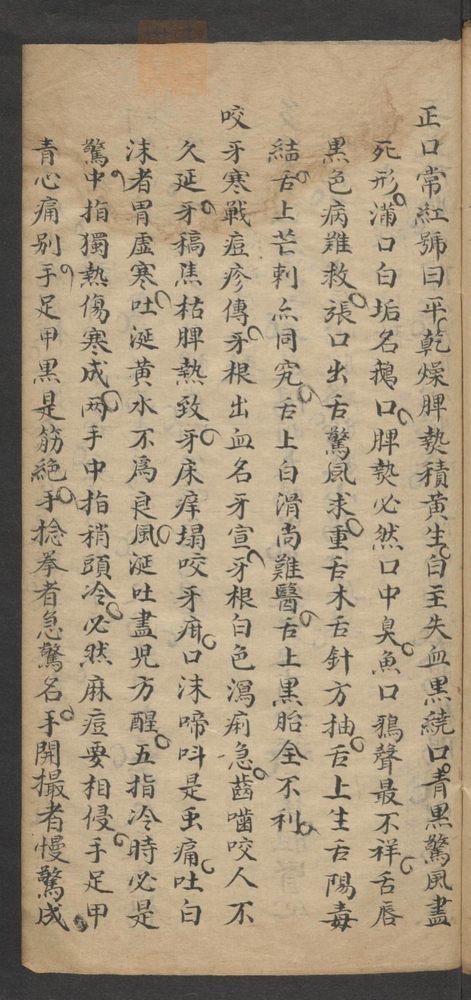 正口常紅號曰平乾燥脾熱積黃生白主失血黑繞口青黑驚風盡
死形滿口白垢名鵝口脾熱必然口中臭魚口鴉聲最不祥舌唇
黑色病難救張口出舌驚風求重舌木舌針方抽舌上生舌陽毒
結舌上芒刺亦同究舌上白滑尚難醫舌上黑胎全不利
咬牙寒戰痘疹傳牙根出血名牙宣牙根白色瀉痢急齒嚙咬人不
久延牙稿焦枯脾熱致牙床痒塌咬牙疳口沫啼呌是虫痛吐白
沫者胃虛寒吐涎黃水不為良風涎吐盡児方醒五指冷時必是
驚中指獨熱傷寒成两手中指稍頭冷必然麻痘要相侵手足甲
青心痛別手足甲黑是筋絕手捻拳者急驚名手開撮者慢驚成